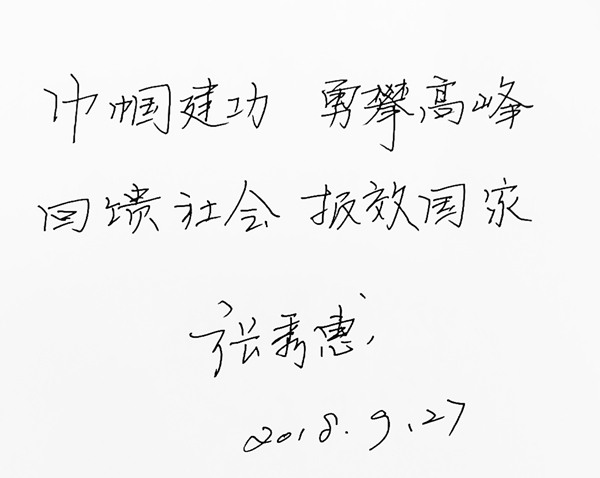 巾帼建功 勇攀高峰
回馈社会 报效国家
张秀惠
2018.9.27